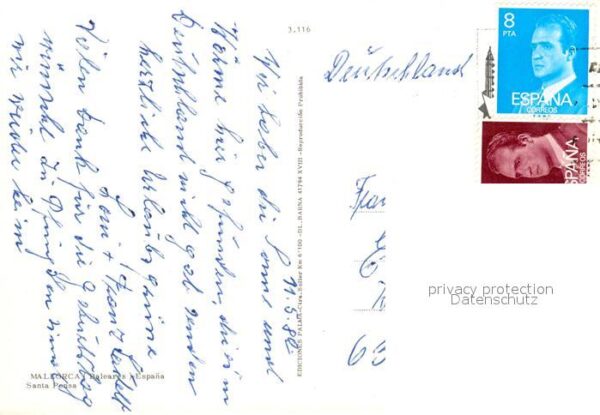 3.116
11.5.82
Wir haben die Sonne und
Wärme hier gefunden, die es im
Deutschland nicht gab. Senden
herzliche Urlaubsgrüße
Vielen Dank für die
wünsche zu Pfingsten sind
wir wieder heim
MALLORCA (Baleares) España
Santa Ponsa
EDICIONES PALMA-Ctra. Sóller Km 6'100 -DL. BARNA 41794 XVIII -Reproducción Prohibida
Deutschland
8
PTA
ESPAÑA
CORREOS
ESPAÑA
CORREOS
privacy protection
Datenschutz